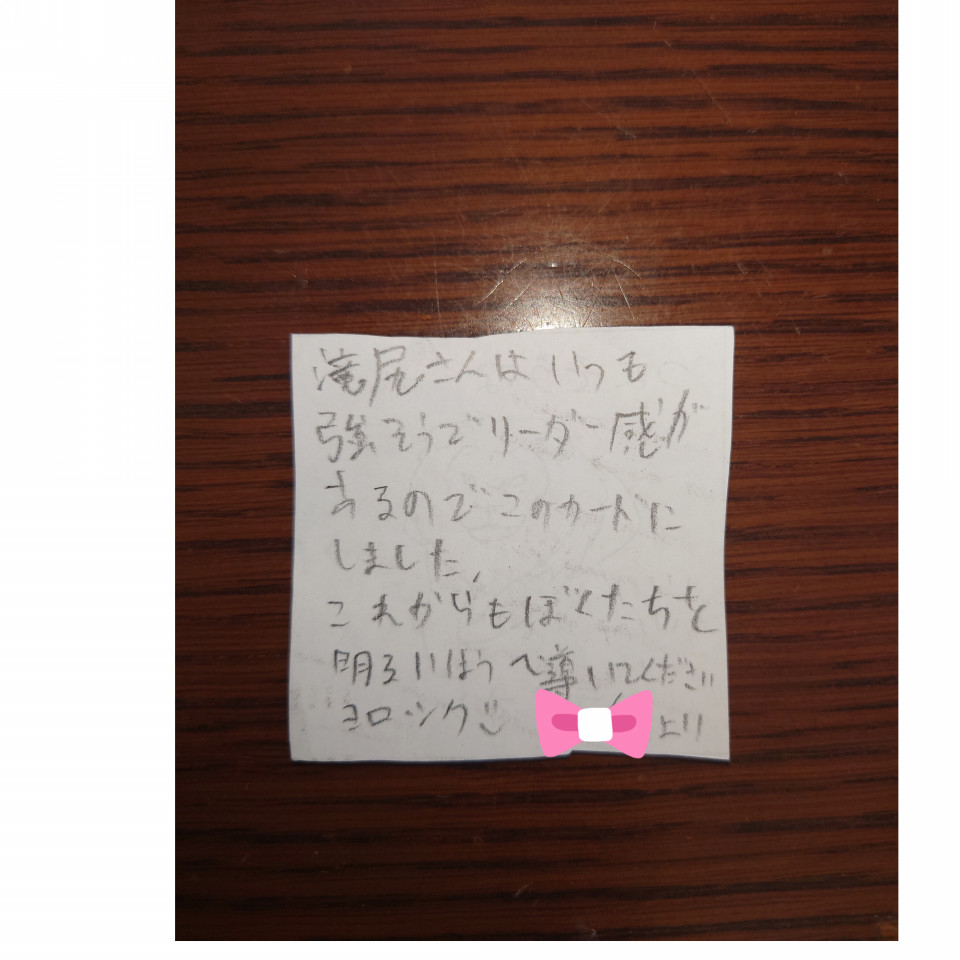 滝尻さんはいつも
強そうでリーダー感が
するのでこのカードに
しました。
これからもぼくたちを
明るいほうへ導いてください
ヨロシク
より